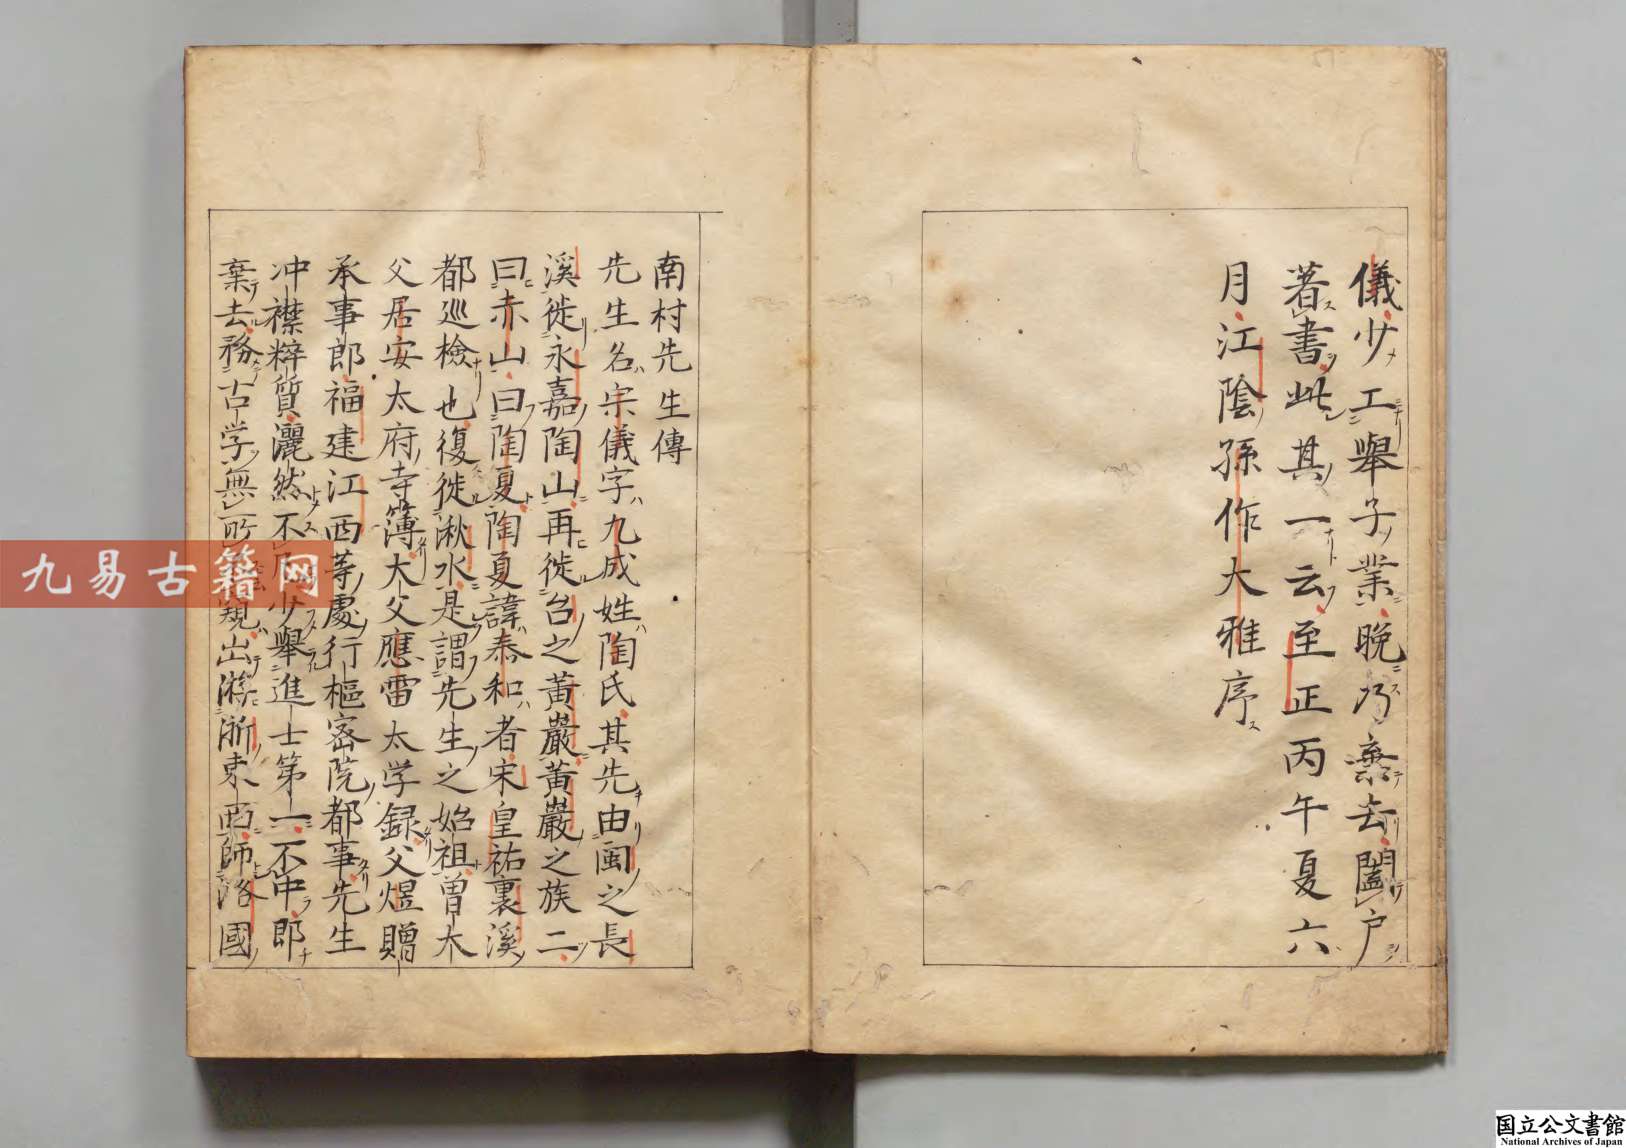 儀少工舉子業晚乃棄去闔戶
著書此其一云至正丙午夏六
月江陰孫作大雅序
南村先生傳
先生名宗儀字九成姓陶氏其先由閩之長
溪徙永嘉陶山再徙台之黃巖黃巖之族二
曰赤山曰陶夏陶夏諱泰和者宋皇祐裏溪
都巡檢也復徙湫水是謂先生之始祖曾大
父居安太府寺簿大父應雷太学録父煜贈
承事郎福建江西等處行樞密院都事先生
冲襟粹質灑然不凡少舉進士第一不中即
棄去務古学無所窺出游浙東西師洛國
九易古籍网
国立公文書館
National Archives of Japan